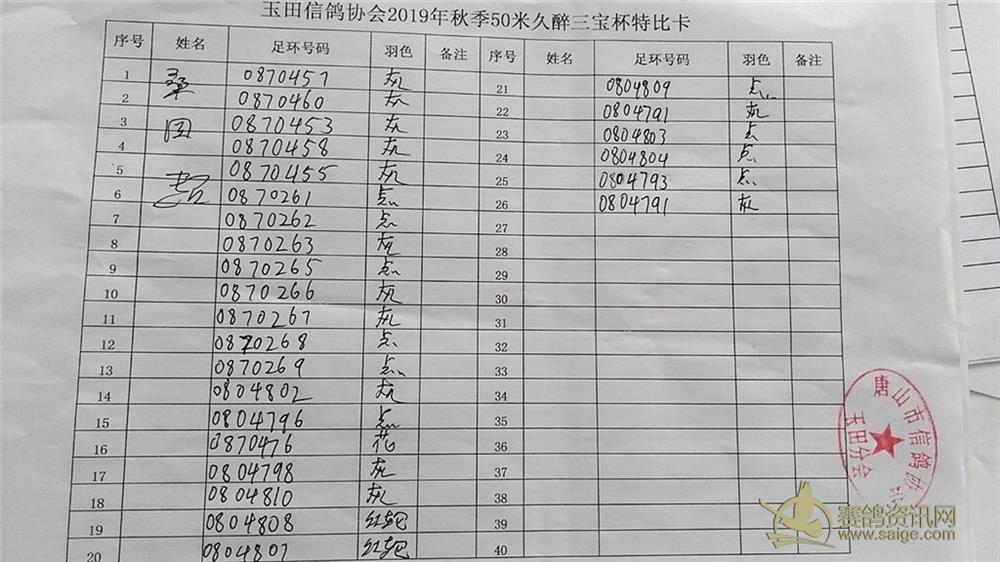 玉田信鸽协会2019年秋季50米久醉三宝杯特比卡
序号 姓名 足环号码 羽色 备注 序号 姓名 足环号码 羽色 备注
1 0870457 灰 21 0804809 点
2 0870460 灰 22 0804791 灰
3 0870453 灰 23 0804803 点
4 0870458 灰 24 0804804 点
5 0870455 灰 25 0804793 点
6 0870261 点 26 0804791 灰
7 0870262 点 27
8 0870263 灰 28
9 0870265 点 29
10 0870266 灰 30
11 0870267 灰 31
12 0870268 点 32
13 0870269 点 33
14 0804802 灰 34
15 0804796 点 35
16 0870476 花 36
17 0804798 灰 37
18 0804810 灰 38
19 0804808 红轮 39
20 0804807 红轮 40
唐山市信鸽协
玉田分会
赛鸽资讯网
www.saige.com